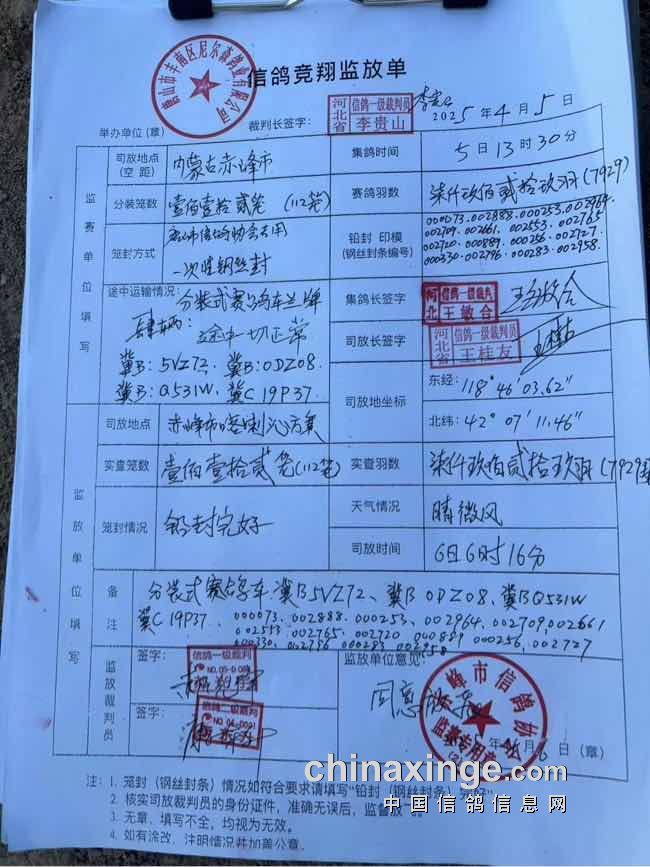 信鸽竞翔监放单
唐山市丰南区尼尔森鸽业有限公司
举办单位(章) 裁判长签字: 河北省 信鸽一级裁判员 李贵山 2025年4月5日
监赛单位填写
司放地点(空距) 内蒙古赤峰市 集鸽时间 5日13时30分
分装笼数 壹佰壹拾贰笼 (112笼) 赛鸽羽数 柒仟玖佰贰拾玖羽(7929)
笼封方式 唐山市信鸽协会专用 一次性钢丝封
铅封 印模(钢丝封条编号)
000073.002888.000253.002964
002709.002661.002553.002765
002720.000889.000256.002727
000330.002796.000283.002958
途中运输情况: 分装式赛鸽车
肆辆: 途中一切正常
冀B:5VZ72, 冀B:0DZ08,
冀B:Q531W, 冀C 19P37.
集鸽长签字 河北 信鸽一级裁判 王敏合 王敏合
司放长签字 河北省 信鸽一级裁判员 王桂友
司放地坐标
东经: 118°46′03.62″
北纬: 42°07′11.46″
监放单位填写
司放地点 赤峰市喀喇沁方氧
实查笼数 壹佰壹拾贰笼(112笼) 实查羽数 柒仟玖佰贰拾玖羽(7929
笼封情况 铅封完好 天气情况 晴微风
司放时间 6日6时16分
备注 分装式赛鸽车冀B5VZ72、冀B0DZ08、冀BQ531W
冀C19P37. 000073.002888.000253.002964.002709.002661
002553.002765.002720 000889 000256.002727
000330.002796 000283 002958
监放裁判员 签字: 信鸽一级裁判
签字: 信鸽二级裁判
监放单位意见: 同意放飞
峰市信鸽协
监赛专用章
年4月6日(章)
注: 1. 笼封(钢丝封条)情况如符合要求请填写"铅封(钢丝封条)完好"
2. 核实司放裁判员的身份证件,准确无误后,监督放飞。
3. 无章、填写不全,均视为无效。
4. 如有涂改,注明情况并加盖公章.
chinaxinge.com
中国信鸽信息网